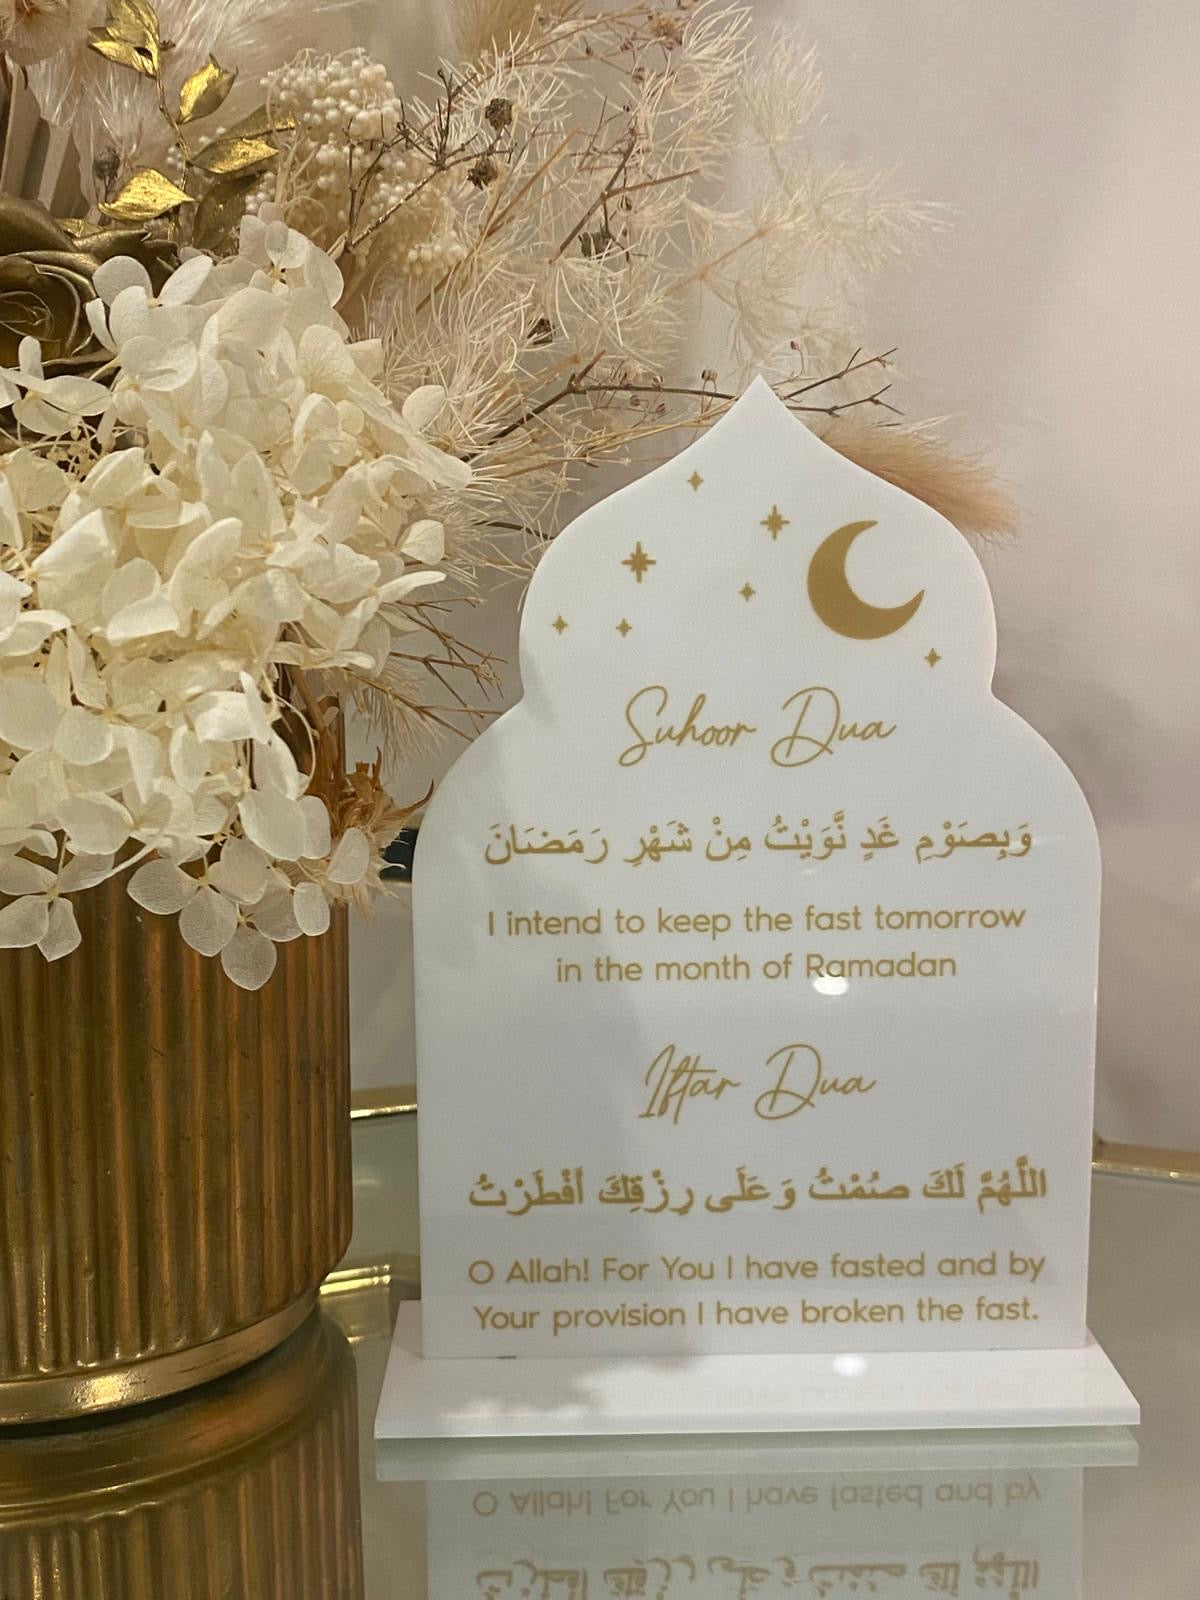 Suhoor Dua
وَبِصَوْمِ غَدٍ نَّوَيْتُ مِنْ شَهْرِ رَمَضَانَ
I intend to keep the fast tomorrow
in the month of Ramadan
Iftar Dua
اللَّهُمَّ لَكَ صُمْتُ وَعَلَى رِزْقِكَ أَفْطَرْتُ
O Allah! For You I have fasted and by
Your provision I have broken the fast.